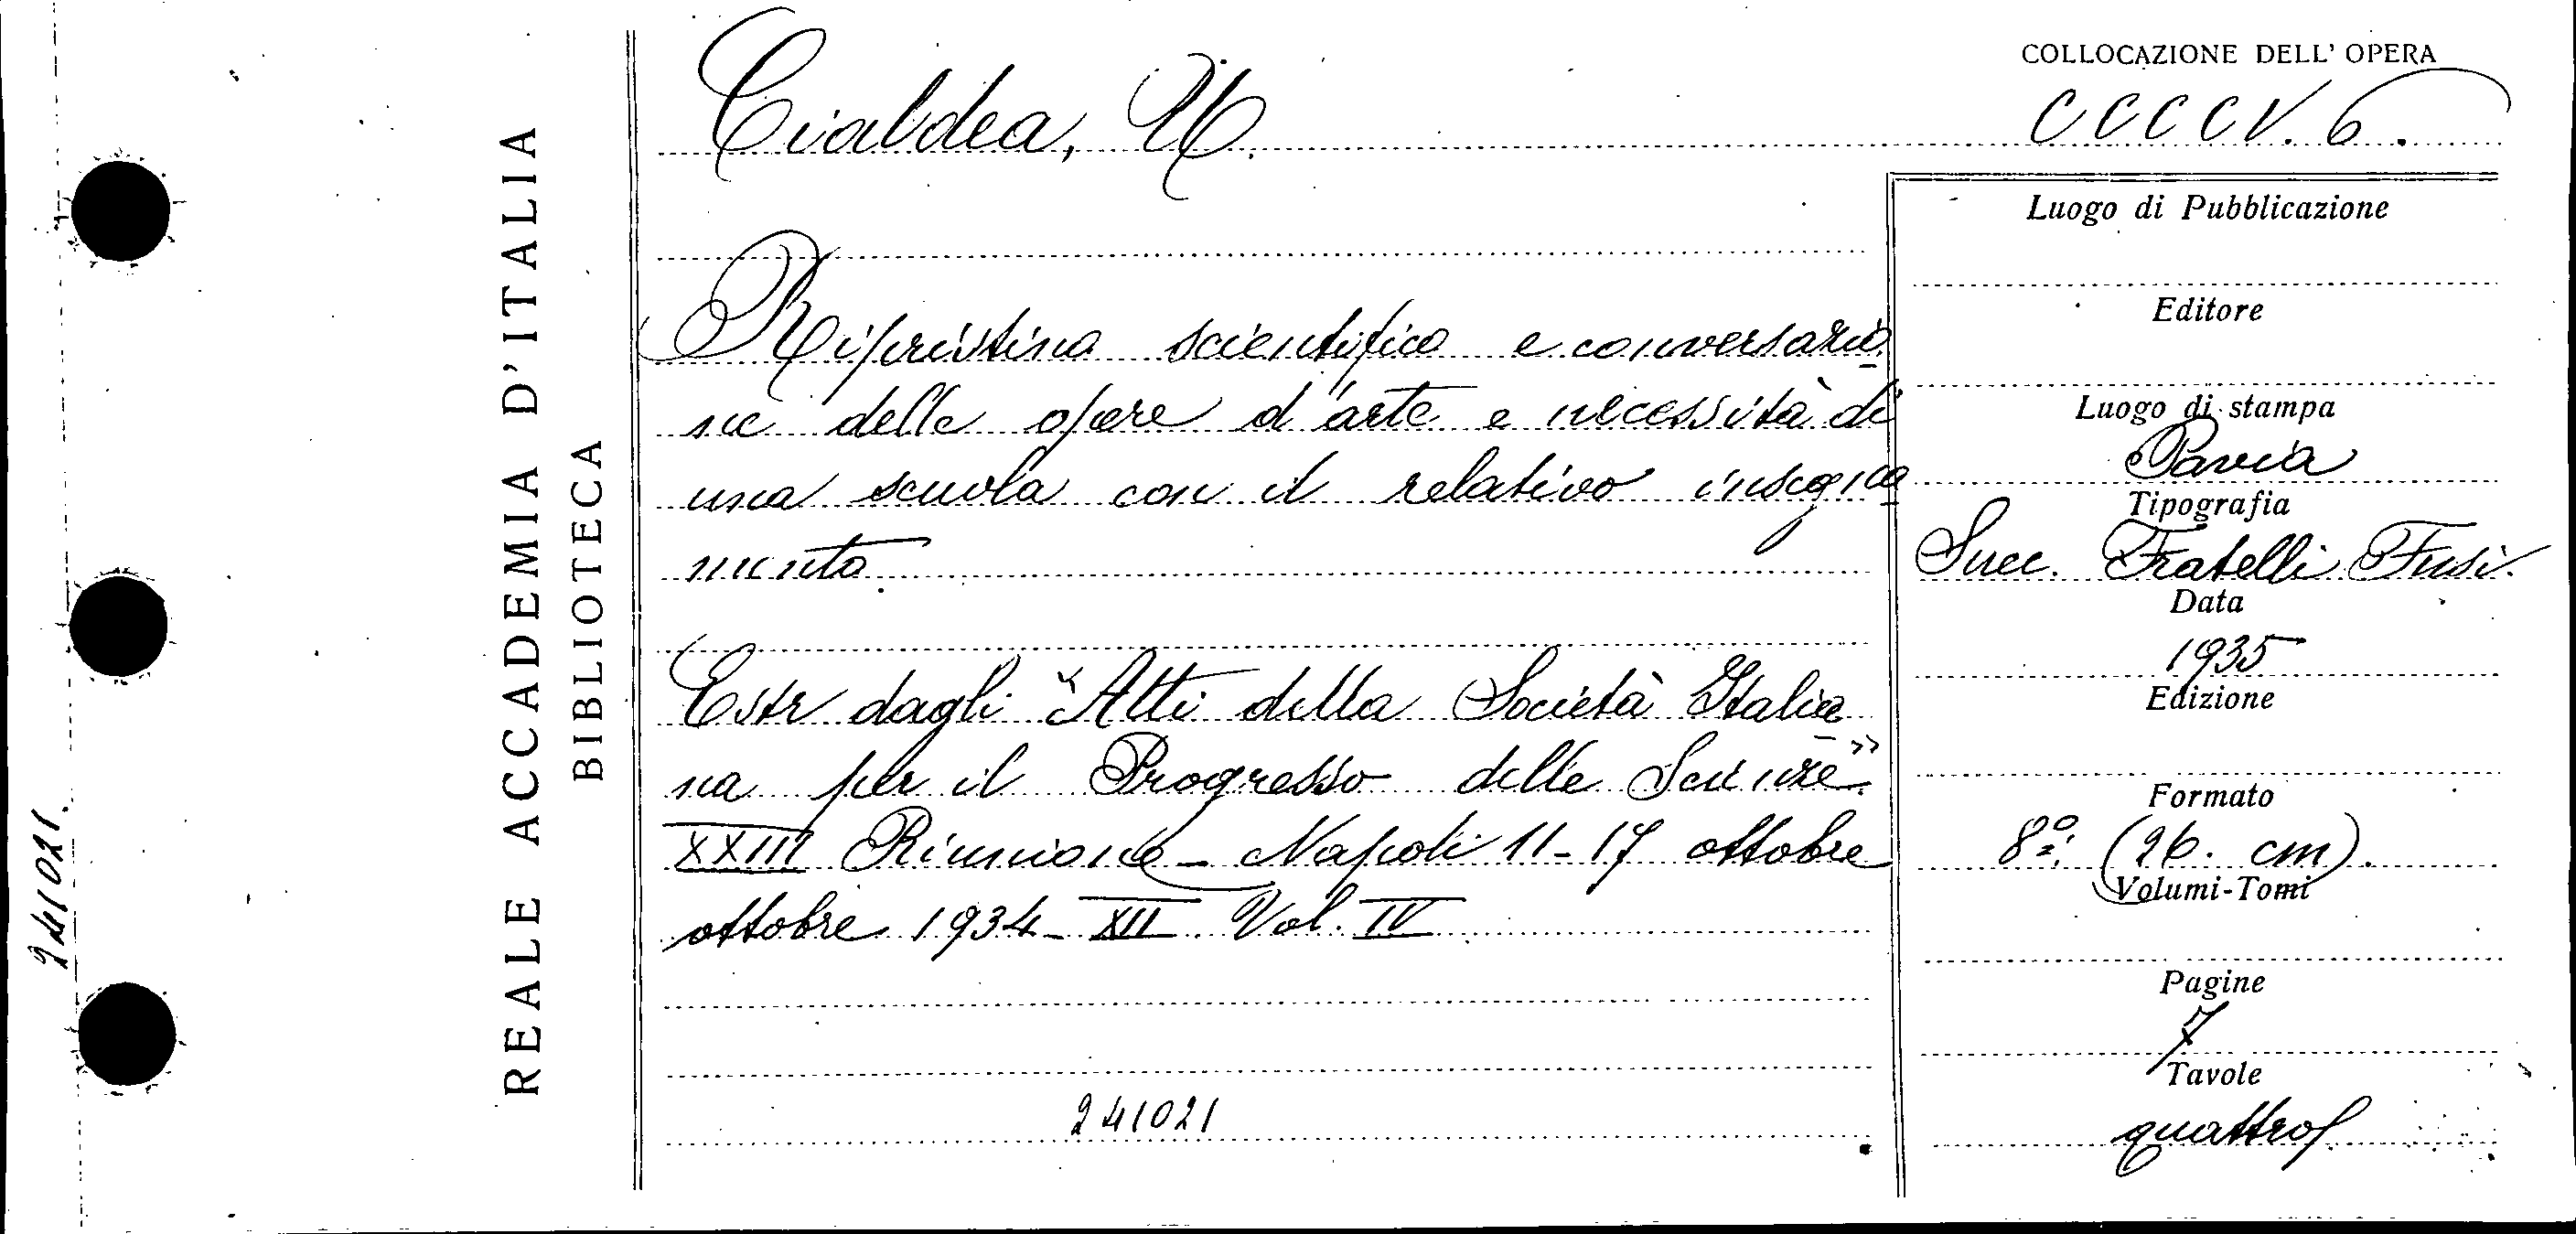 COLLOCAZIONE DELL' OPERA
Cialdea, U.
CCCCV. 6.
REALE ACCADEMIA D'ITALIA
BIBLIOTECA
241021.
Ripristino scientifico e conversazio
ne delle opere d'arte e necessità di
una scuola con il relativo insegna
mento.
Estr dagli "Atti della Società Italia
na per il Progresso delle Scienze".
XXIII Riunione - Napoli 11-17 ottobre
ottobre 1934 - XII Vol. IV
241021
Luogo di Pubblicazione
Editore
Luogo di stampa
Pavia
Tipografia
Succ. Fratelli Fusi.
Data
1935
Edizione
Formato
8º: (26. cm).
Volumi-Tomi
Pagine
7
Tavole
quattro